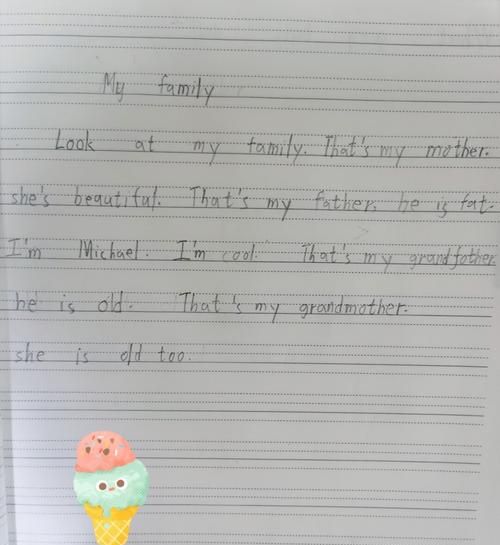 My family
Look at my family. That's my mother.
she's beautiful. That's my father. he is fat.
I'm Michael. I'm cool. That's my grandfather.
he is old. That's my grandmother.
she is old too.